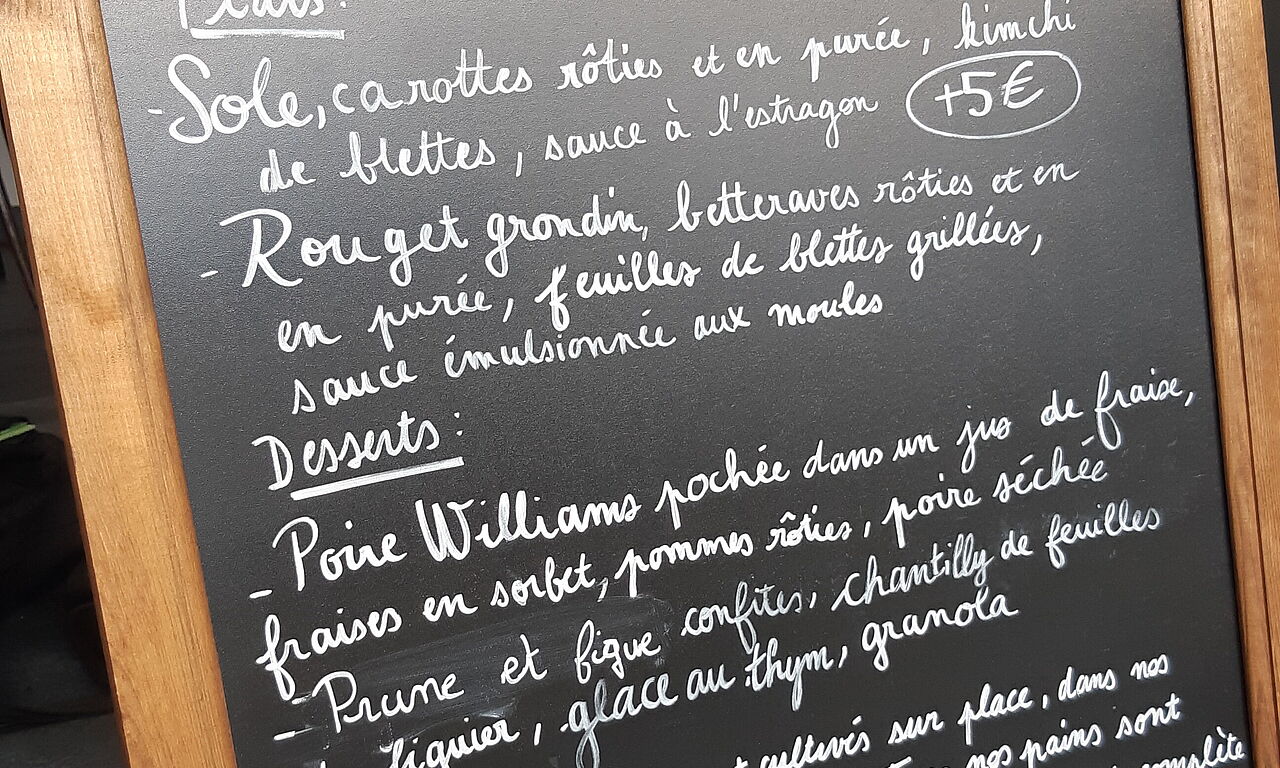 Plats:
- Sole, carottes rôties et en purée, kimchi
de blettes, sauce à l'estragon +5€
- Rouget grondin, betteraves rôties et en
en purée, feuilles de blettes grillées,
sauce émulsionnée aux moules
Desserts:
- Poire Williams pochée dans un jus de fraise,
fraises en sorbet, pommes rôties, poire séchée
- Prune et figue confites, chantilly de feuilles
de figuier, glace au thym, granola
cultivés sur place, dans nos
nos pains sont
complète